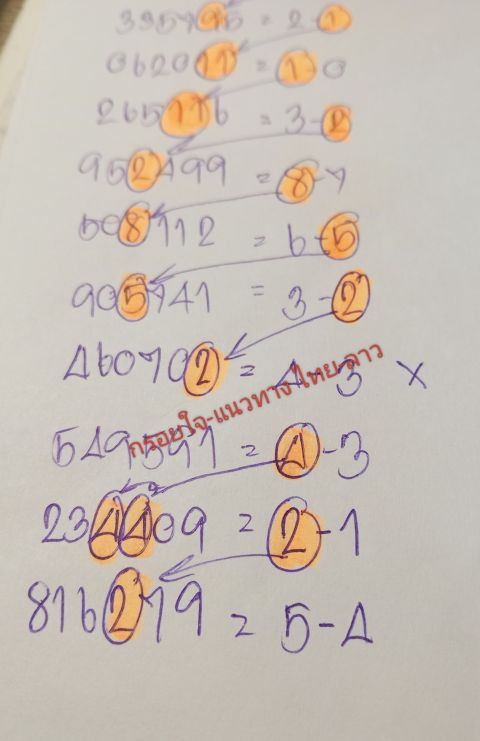 335795 = 2-1
062011 = 1-0
265116 = 3-2
952499 = 8-7
508112 = 6-5
905741 = 3-2
460702 = 4-3 ×
549591 = 4-3
กรอยใจ-แนวทางไทย-ลาว
234409 = 2-1
816279 = 5-4